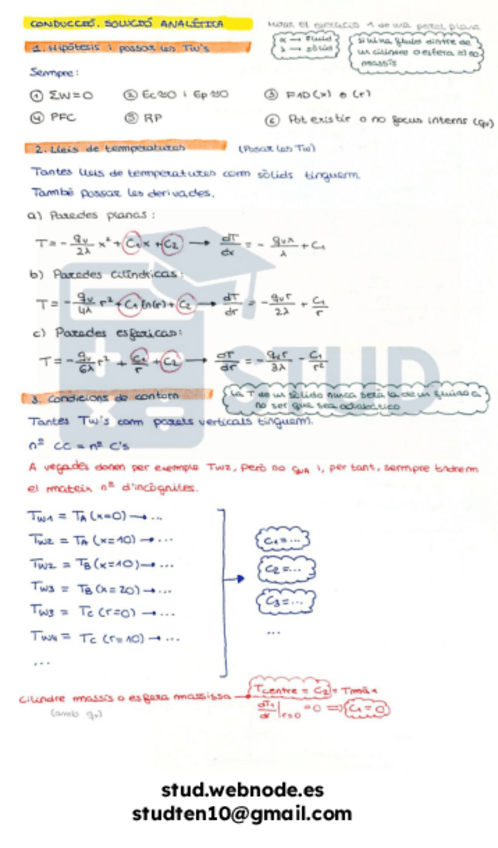 CONDUCCIÓ. SOLUCIÓ ANALÍTICA
Mirar el exercici 1 de una paret plana
1. Hipòtesis i posar les Tw's
α → fluid
λ → sòlid
Si hi ha fluid dintre de
un cilindre o esfera
massís
Sempre:
① ΣW=0 ② Ec≈0 i Ep≈0 ③ F1D(x) o (r)
④ PFC ⑤ RP ⑥ Pot existir o no focus interns (qv)
2. Lleis de temperatures (Posar les Tw)
Tantes lleis de temperatures com sòlids tinguem.
També posar les derivades.
a) Paredes planas:
T = - qv/2λ x² + C₁x + C₂ → dT/dx = - qvx/λ + C₁
b) Paredes cilíndricas:
T = - qv/4λ r² + C₁ ln(r) + C₂ → dT/dr = - qvr/2λ + C₁/r
c) Paredes esféricas:
T = - qv/6λ r² + C₁/r + C₂ → dT/dr = - qvr/3λ - C₁/r²
3. Condicions de contorn
La T de un sòlido nunca será la de un fluido a
no ser que sea adiabático
Tantes Tw's com parets verticals tinguem.
nº CC = nº C's
A vegades donen per exemple Tw2, però no qvA i, per tant, sempre tindrem
el mateix nº d'incògnites.
Tw1 = TA (x=0) → ...
Tw2 = TA (x=10) → ...
Tw2 = TB (x=10) → ...
Tw3 = TB (x=20) → ...
Tw3 = TC (r=0) → ...
Tw4 = TC (r=10) → ...
...
C₁=...
C₂=...
C₃=...
...
cilindre massís o esfera massissa → Tcentre = C₂ = Tmàx
(amb qv)
dT/dr|r=0 = 0 ⇒ C₁=0
STUD
stud.webnode.es
studten10@gmail.com